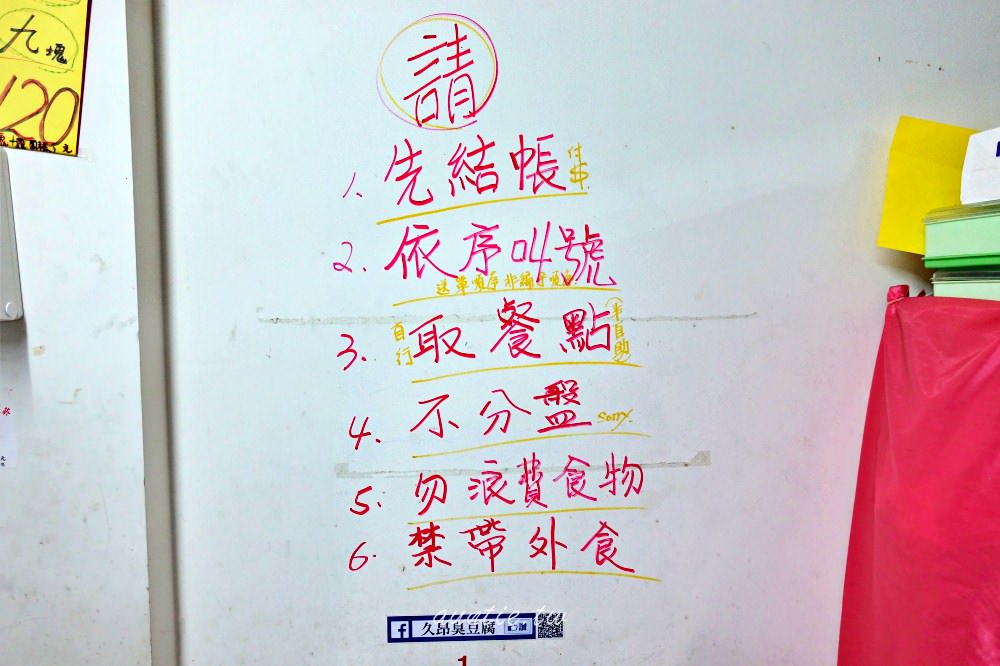 九塊
120
請
1. 先結帳 付$
2. 依序叫號
送單順序非編號順序
3. 自行取餐點 半自助
4. 不分盤 sorry.
5. 勿浪費食物
6. 禁帶外食
久昂臭豆腐 讚
1